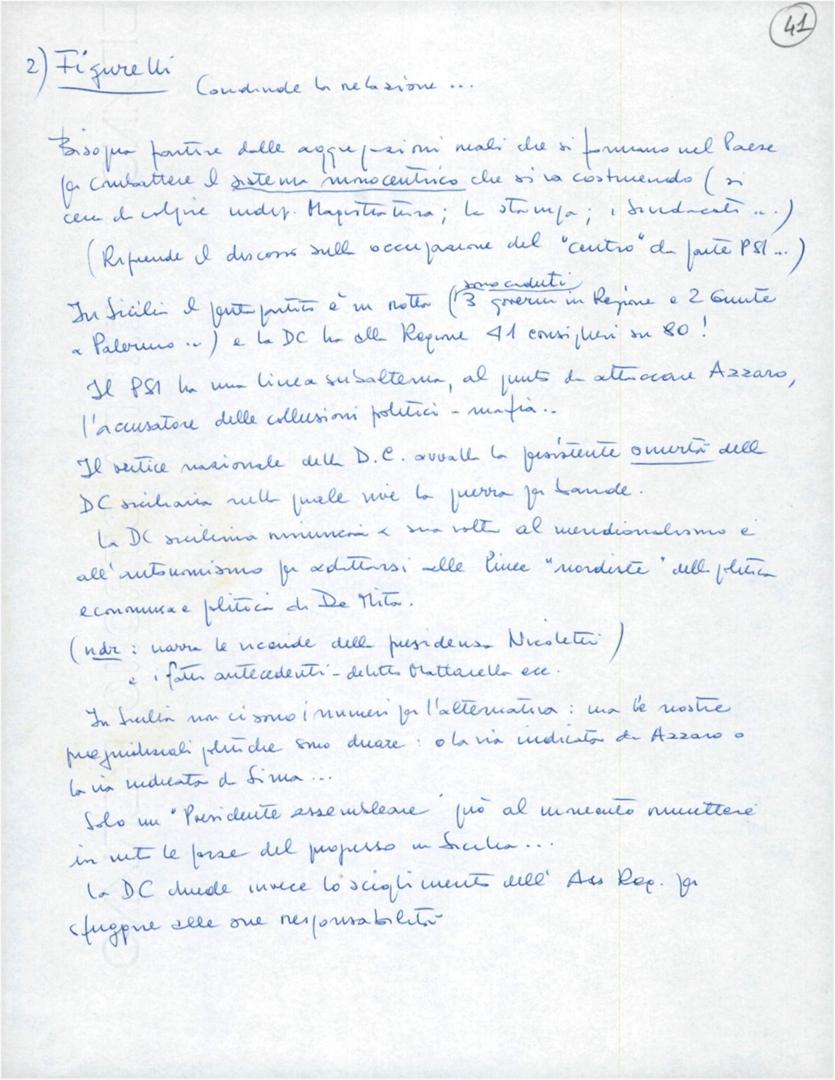 41
2) Figurelli
Condivide la relazione...
Bisogna partire dalle aggregazioni reali che si formano nel Paese
per combattere il sistema monocentrico che si va costruendo (si
cerca di colpire indip. Magistratura; la stampa; i Sindacati...)
(Riprende il discorso sulla occupazione del "centro" da parte PSI...)
In Sicilia il pentapartito è in rotta (sono caduti 3 governi in Regione e 2 Giunte
a Palermo...) e la DC ha alla Regione 41 consiglieri su 80!
Il PSI ha una linea subalterna, al punto da attaccare Azzaro,
l'accusatore delle collusioni politici - mafia..
Il vertice nazionale della D.C. avvalla la persistente omertà della
DC siciliana nella quale vive la guerra per bande.
La DC siciliana rinuncia a sua volta al meridionalismo e
all'autonomismo per adattarsi alle linee "nordiste" della politica
economica e politica di De Mita.
(ndr: narra le vicende della presidenza Nicoletti)
e i fatti antecedenti - delitto Mattarella ecc.
In Sicilia non ci sono i numeri per l'alternativa: ma le nostre
pregiudiziali politiche sono chiare: o la via indicata da Azzaro o
la via indicata da Lima...
Solo un "Presidente assembleare" può al momento rimettere
in moto le forze del progresso in Sicilia...
La DC chiede invece lo scioglimento dell' Ass Reg. per
sfuggire alle sue responsabilità